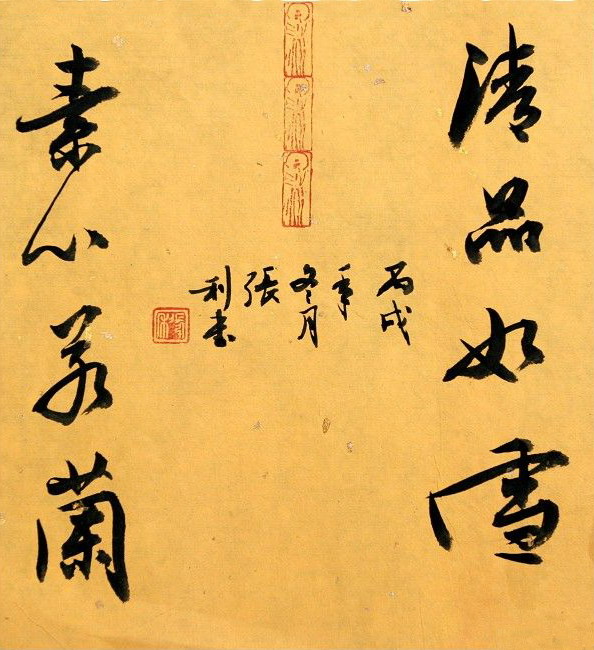 清品如雪
素心若蘭
丙戌
年
冬月
張
利書